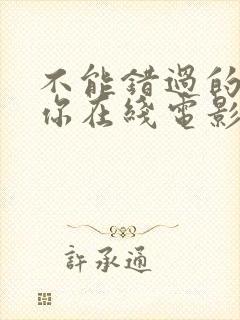 不能錯過的
你在綫電影
許承通